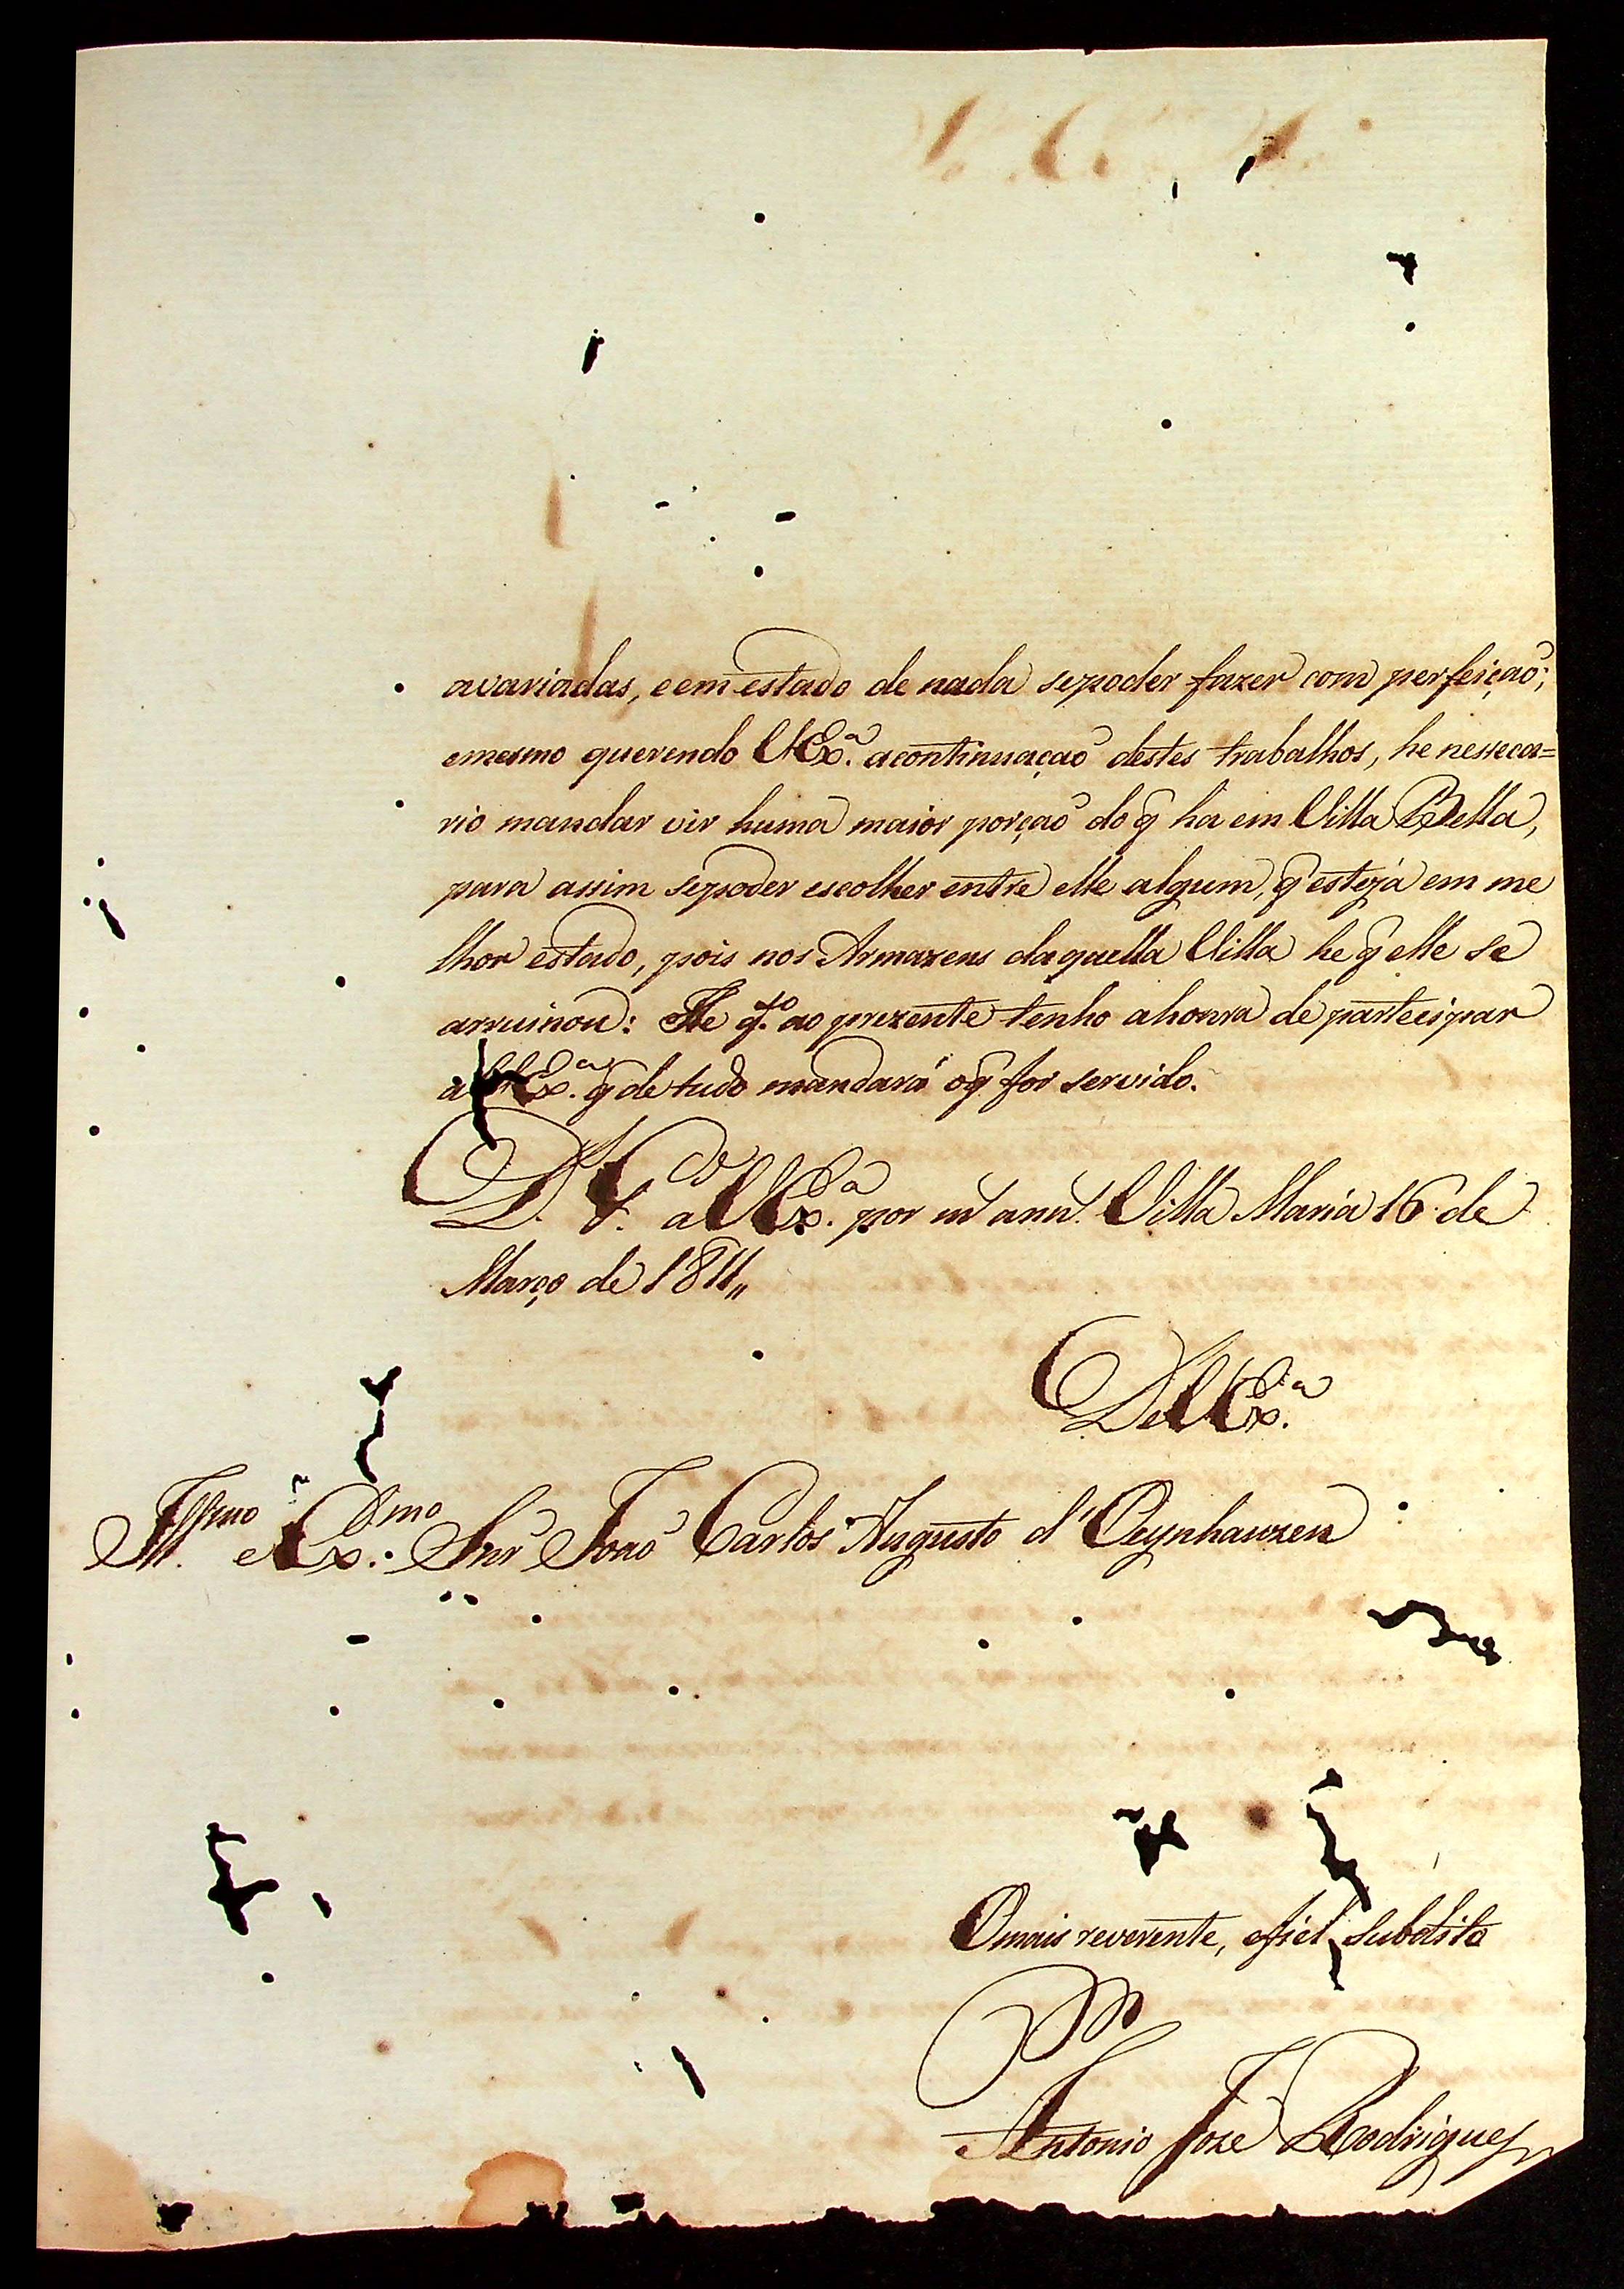 avariadas, e em estado de nada sepoder fazer com perfeiçaõ;
emesmo querendo VEx.ª acontinuaçaõ destes trabalhos, he neseca=
rio mandar vir huma maior porçaõ do q̃ ha em Villa Bella,
para assim sepoder escolher entre elle algum, q̃ estejá em me
lhor estado, pois nos Armazens daquella Villa he q̃ elle se
arruinou: He q.to ao prezente tenho ahonra de partecipar
a VEx.ª q̃ de tudo mandará oq̃ for servido.
D.s G.de a VEx.ª por m.s ann.s Villa Maria 16 de
Março de 1811,,
De VEx.ª
Ill.mo e Ex.mo Snr' Joaõ Carlos Augusto d'Oeynhauzen
Omais reverente, efiel subdito
Antonio Joze Rodrigues